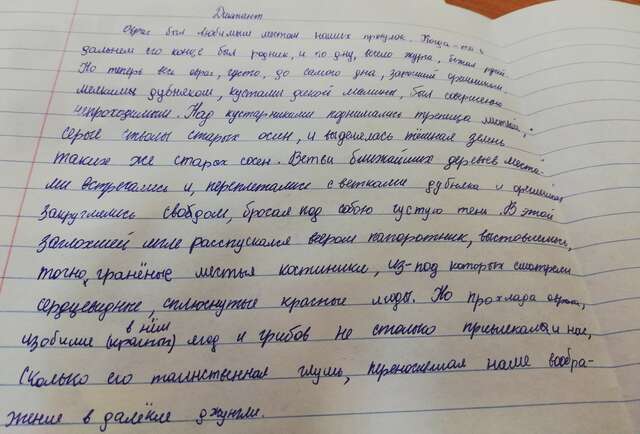 Диктант
Овраг был любимым местом наших прогулок. Когда-то в
дальнем его конце был родник, и по дну, весело журча, бежал ручей.
Но теперь весь овраг, густо, до самого дна, заросший орешником,
мелкими дубняком, кустами дикой малины, был совершенно
непроходимым. Над кустарниками поднимались
серые стволы старых осин, и выделялась тёмная зелень
таких же старых сосен. Ветви ближайших деревьев места-
ми встречались и, переплетаясь с ветками дубняка и орешника
закруглялись сводом, бросая под собою густую тень. В этой
заглохшей мгле распускался веером папоротник, выставлялись,
точно, гранёные листья костяники, из-под которых смотрели
сердцевидные, сплюснутые красные ягоды. Но прохлада оврага,
изобилие в нём ягод и грибов не столько привлекали нас,
сколько его таинственная глушь, переносившая наше вообра-
жение в далёкие джунгли.